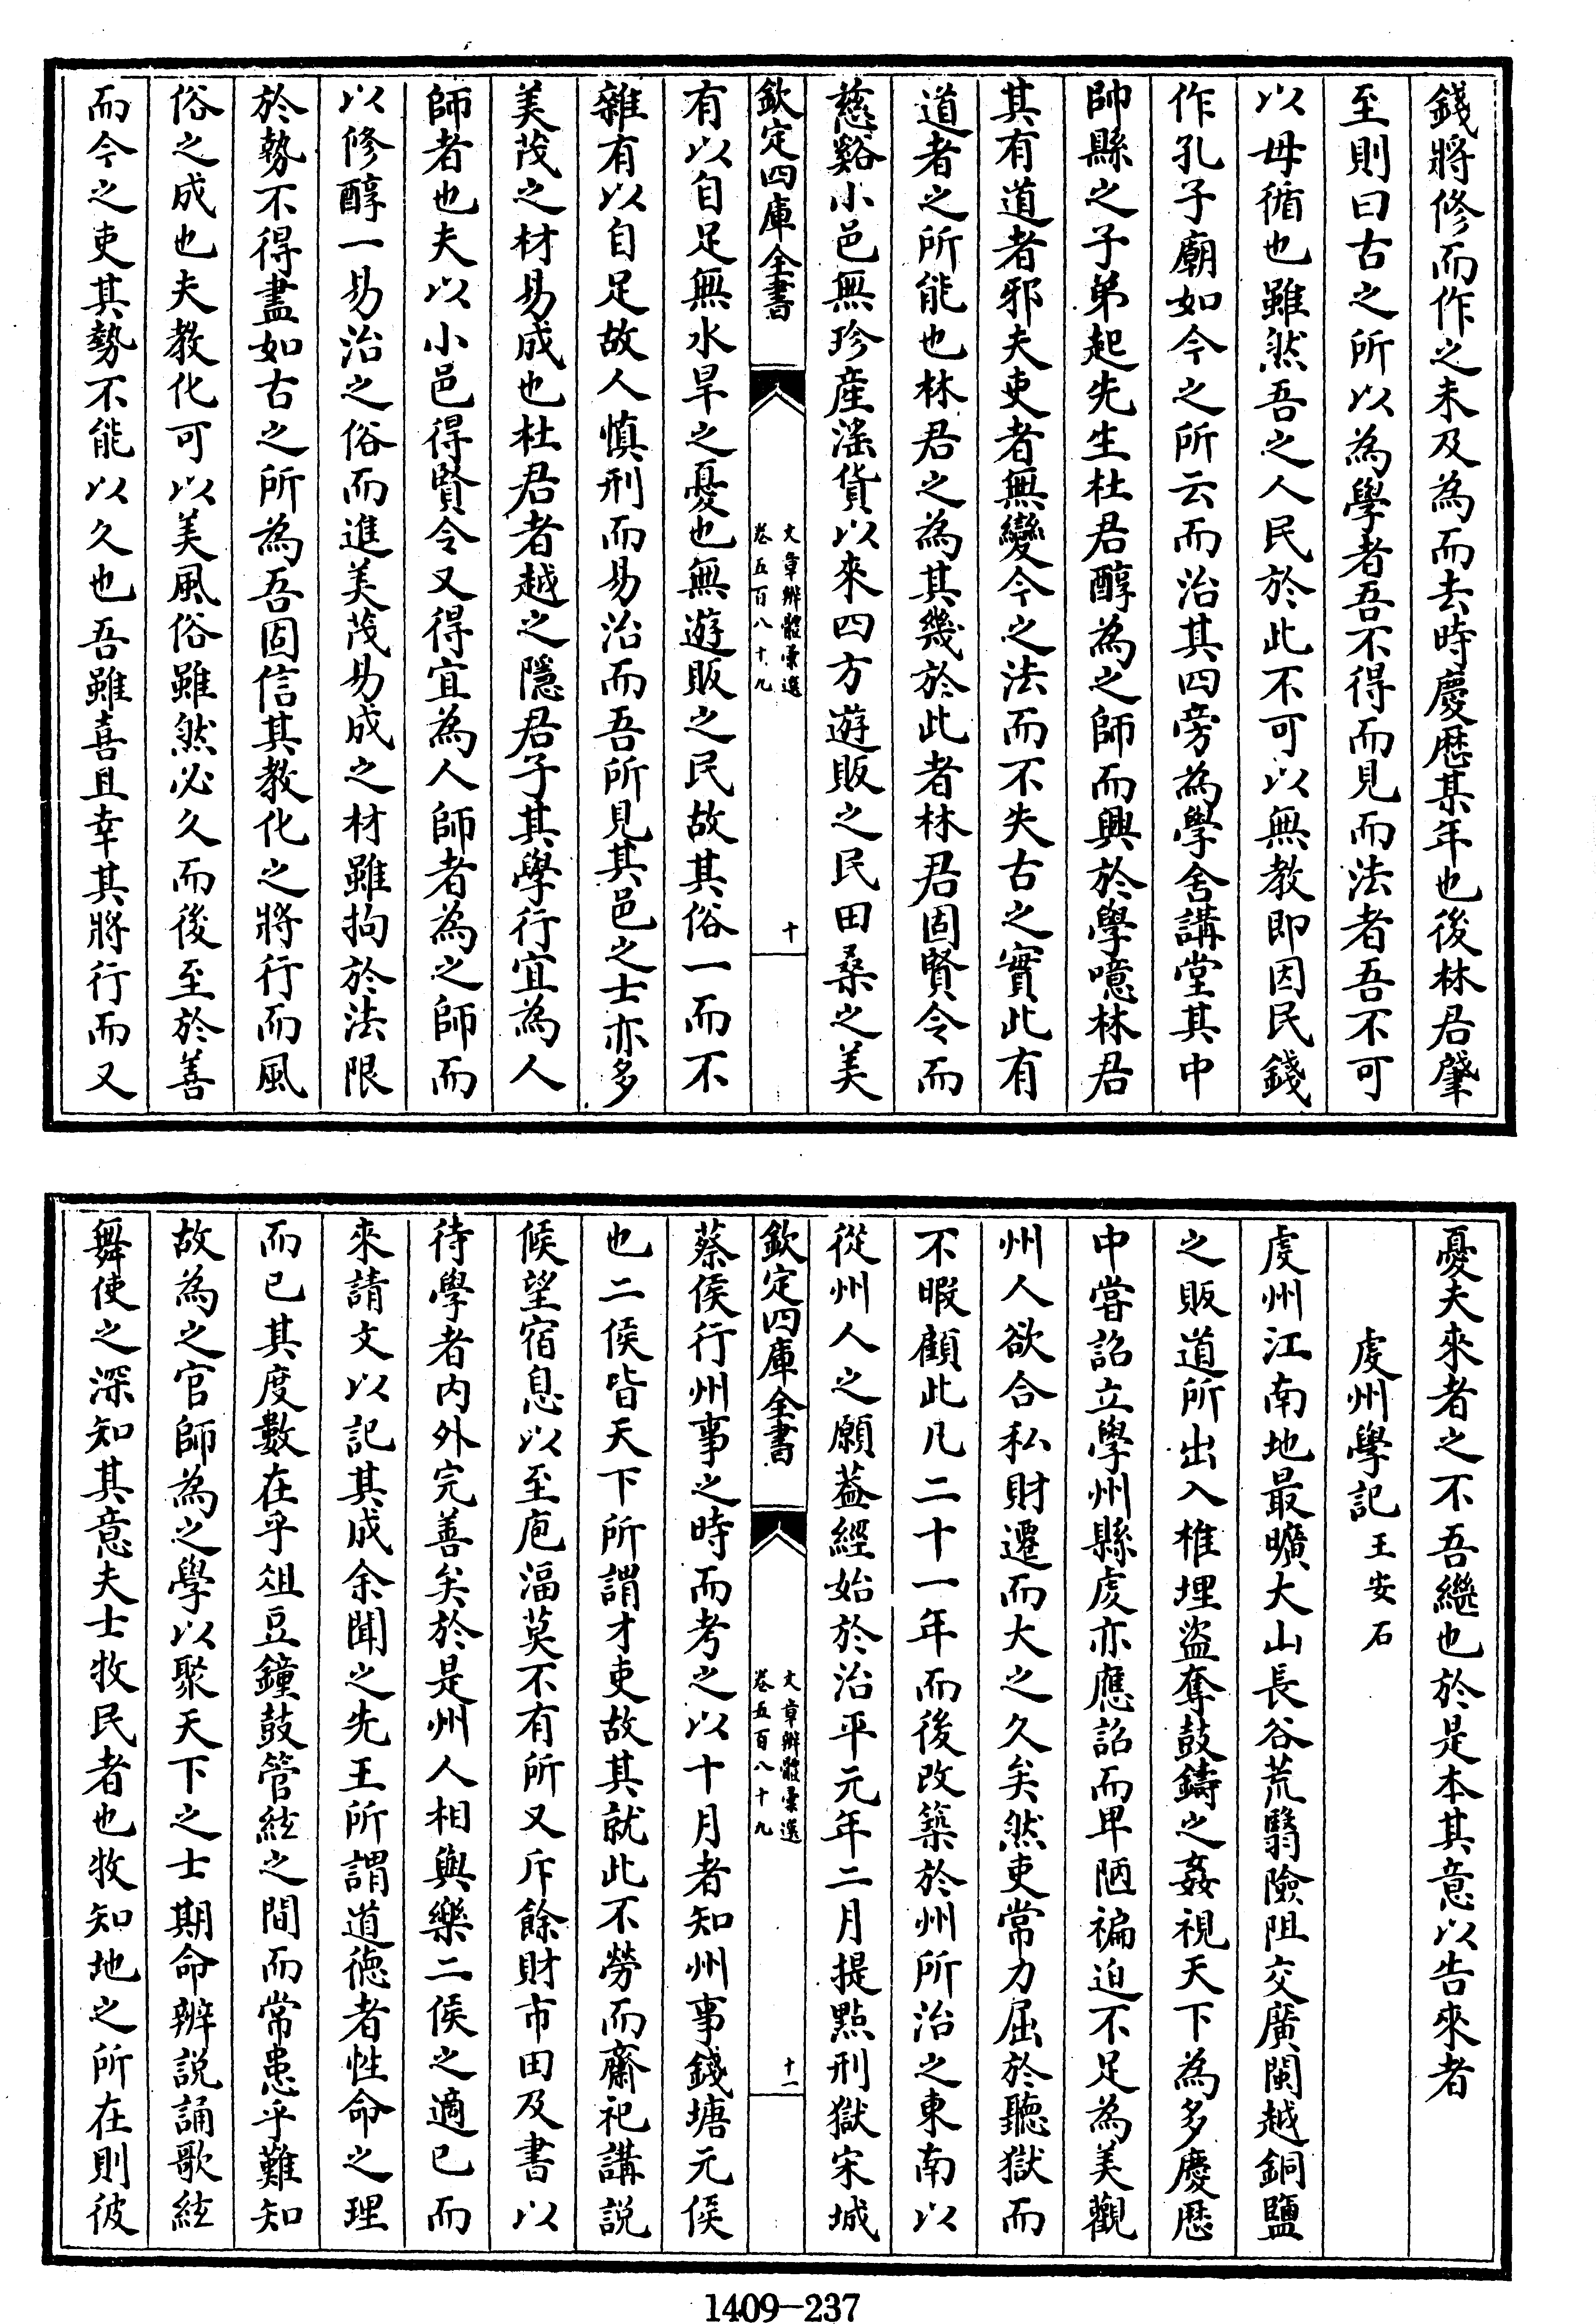 錢將修而作之未及為而去時慶厯某年也後林君肇
至則曰古之所以為學者吾不得而見而法者吾不可
以毋循也雖然吾之人民於此不可以無教即因民錢
作孔子廟如今之所云而治其四旁為學舍講堂其中
帥縣之子弟起先生杜君醇為之師而興於學噫林君
其有道者邪夫吏者無變今之法而不失古之實此有
道者之所能也林君之為其幾於此者林君固賢令而
慈谿小邑無珍産滛貨以來四方遊販之民田桑之美
欽定四庫全書
文章辨體彚選
卷五百八十九
十
有以自足無水旱之憂也無遊販之民故其俗一而不
雜有以自足故人慎刑而易治而吾所見其邑之士亦多
美茂之材易成也杜君者越之隱君子其學行宜為人
師者也夫以小邑得賢令又得宜為人師者為之師而
以修醇一易治之俗而進美茂易成之材雖拘於法限
於勢不得盡如古之所為吾固信其教化之將行而風
俗之成也夫教化可以美風俗雖然必久而後至於善
而今之吏其勢不能以久也吾雖喜且幸其將行而又
憂夫來者之不吾繼也於是本其意以告來者
䖍州學記王安石
䖍州江南地最曠大山長谷荒翳險阻交廣閩越銅鹽
之販道所出入椎埋盜奪鼓鑄之姦視天下為多慶厯
中嘗詔立學州縣䖍亦應詔而卑陋褊迫不足為美觀
州人欲合私財遷而大之久矣然吏常力屈於聽獄而
不暇顧此凡二十一年而後改築於州所治之東南以
從州人之願葢經始於治平元年二月提點刑獄宋城
欽定四庫全書
文章辨體彚選
卷五百八十九
十一
蔡侯行州事之時而考之以十月者知州事錢塘元侯
也二侯皆天下所謂才吏故其就此不勞而齋祀講説
候望宿息以至庖湢莫不有所又斥餘財市田及書以
待學者内外完善矣於是州人相與樂二侯之適已而
來請文以記其成余聞之先王所謂道德者性命之理
而已其度數在乎俎豆鐘鼓管絃之間而常患乎難知
故為之官師為之學以聚天下之士期命辨説誦歌絃
舞使之深知其意夫士牧民者也牧知地之所在則彼
1409—237